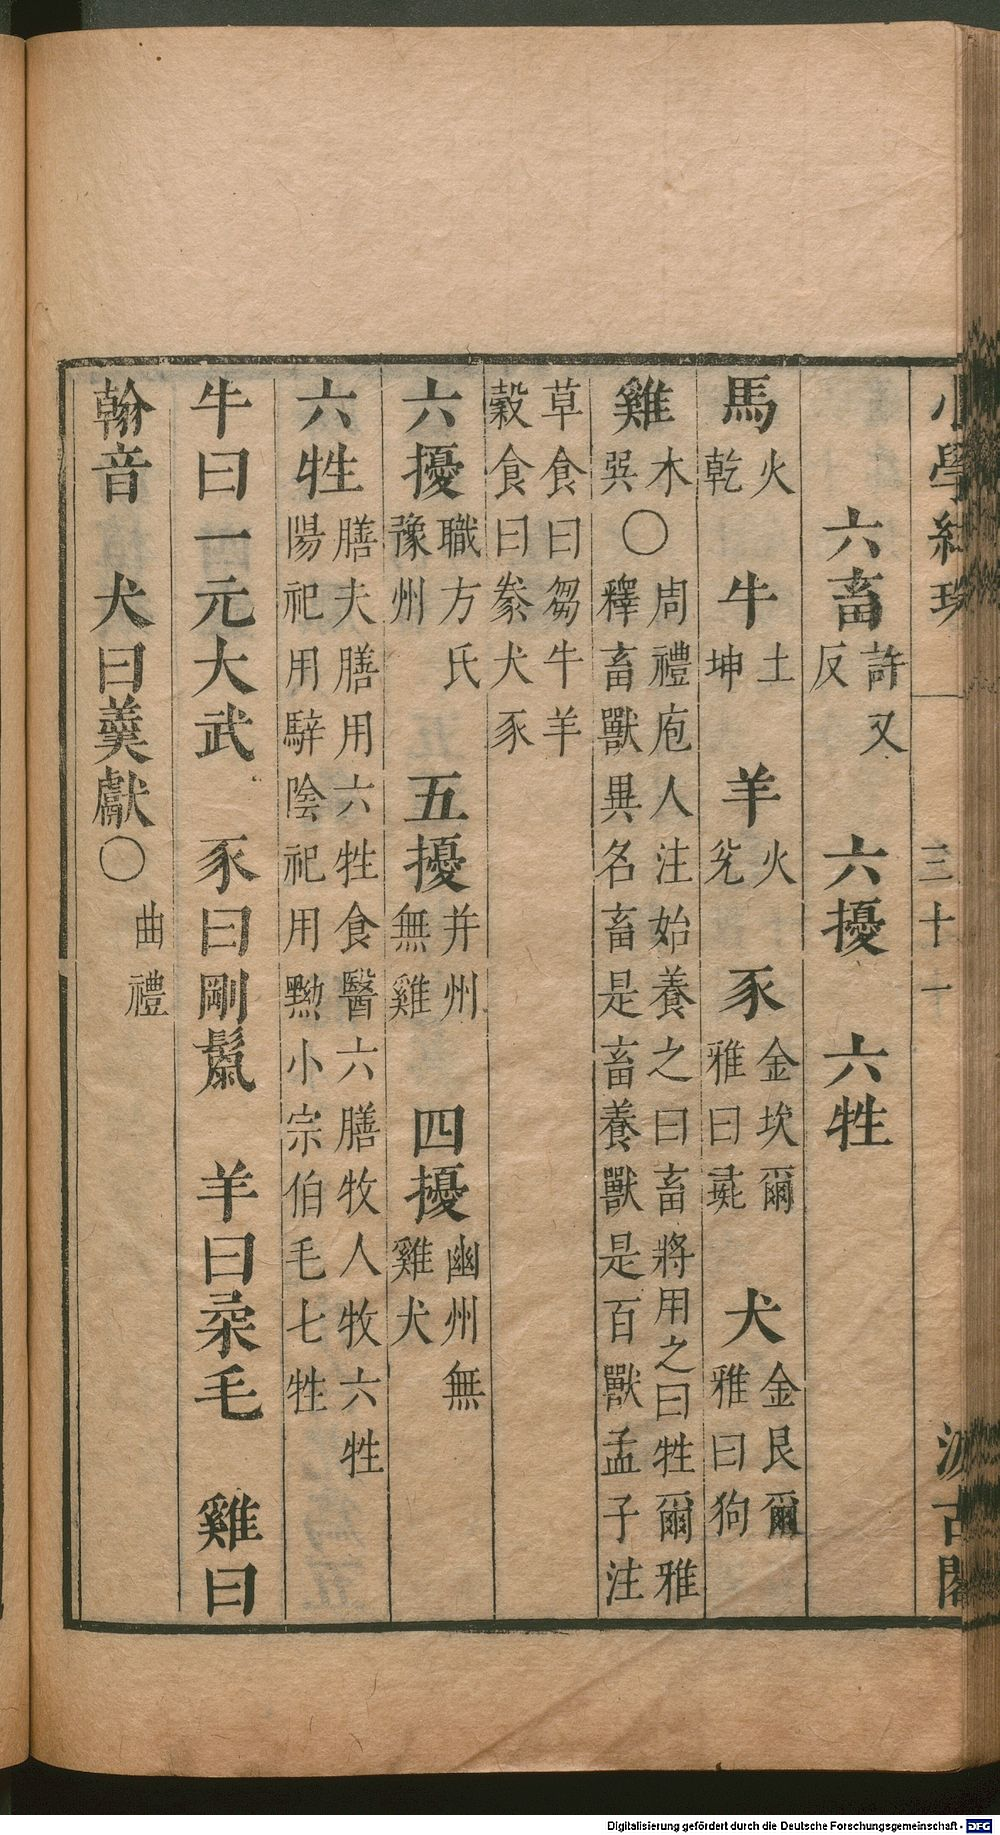 小學紺珠 三十一 汲古閣
六畜許又反 六擾 六牲
馬火乾 牛土坤 羊火兊 豕金埃爾雅曰彘 犬金艮爾雅曰狗
雞木巽〇周禮庖人注始養之曰畜將用之曰牲爾雅釋畜獸異名畜是畜養獸是百獸孟子注
草食曰芻牛羊穀食曰豢犬豕
六擾職方氏豫州 五擾并州無雞 四擾幽州無雞犬
六牲膳夫膳用六牲食醫六膳牧人牧六牲陽祀用騂陰祀用黝小宗伯毛七牲
牛曰一元大武 豕曰剛鬛 羊曰柔毛 雞曰
翰音 犬曰羹獻〇曲禮
Digitalisierung gefördert durch die Deutsche Forschungsgemeinschaft - DFG